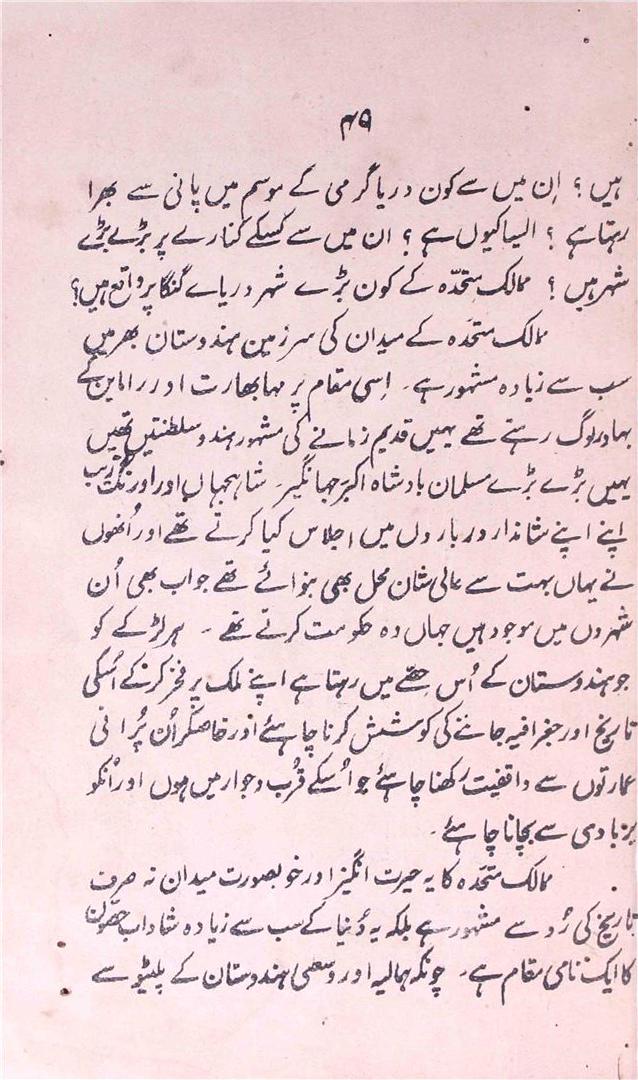 ۴۹
ہیں ؟ اِن میں سے کون دریا گرمی کے موسم میں پانی سے بھرا
رہتا ہے ؟ ایسا کیوں ہے ؟ ان میں سے کسکے کنارے پر بڑے بڑے
شہر ہیں ؟ ممالک متحدّہ کے کون بڑے شہر دریاے گنگا پر واقع ہیں؟
ممالک متحدّہ کے میدان کی سرزمین ہندوستان بھر میں
سب سے زیادہ مشہور ہے۔ اِسی مقام پر مہابھارت اور راماین کے
بہادر لوگ رہتے تھے یہیں قدیم زمانے کی مشہور ہندو سلطنتیں تھیں
یہیں بڑے بڑے مسلمان بادشاہ اکبر جہانگیر۔ شاہجہاں اور اورنگ زیب
اپنے اپنے شاندار درباروں میں اجلاس کیا کرتے تھے اور اُنھوں
نے یہاں بہت سے عالی شان محل بھی بنوائے تھے جو اب بھی اُن
شہروں میں موجود ہیں جہاں وہ حکومت کرتے تھے ۔ ہر لڑکے کو
جو ہندوستان کے اُس حصّے میں رہتا ہے اپنے ملک پر فخر کرنے کے اُسکی
تاریخ اور جغرافیہ جاننے کی کوشش کرنا چاہئے اور خاصکر اُن پُرانی
عمارتوں سے واقفیت رکھنا چاہئے جو اُسکے قُرب و جوار میں ہوں اور اُنکو
بربادی سے بچانا چاہئے۔
ممالک متحدّہ کا یہ حیرت انگیز اور خوبصورت میدان نہ صرف
تاریخ کی رُو سے مشہور ہے بلکہ یہ دُنیا کے سب سے زیادہ شاداب حصّوں
کا ایک نامی مقام ہے۔ چونکہ ہمالیہ اور وسطی ہندوستان کے پلیٹو سے